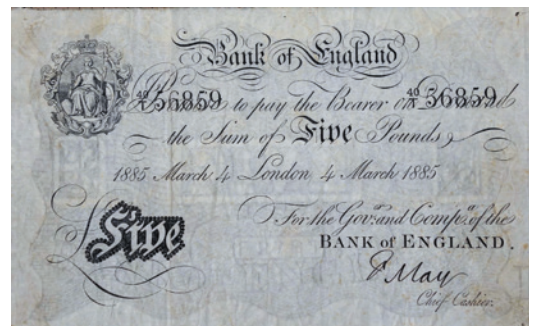 Bank of England
40/X 56859 Promise to pay the Bearer on Demand 40/X 56859
the Sum of Five Pounds
1885 March 4 London 4 March 1885
For the Govr. and Compa. of the
BANK of ENGLAND.
Five
F May
Chief Cashier.